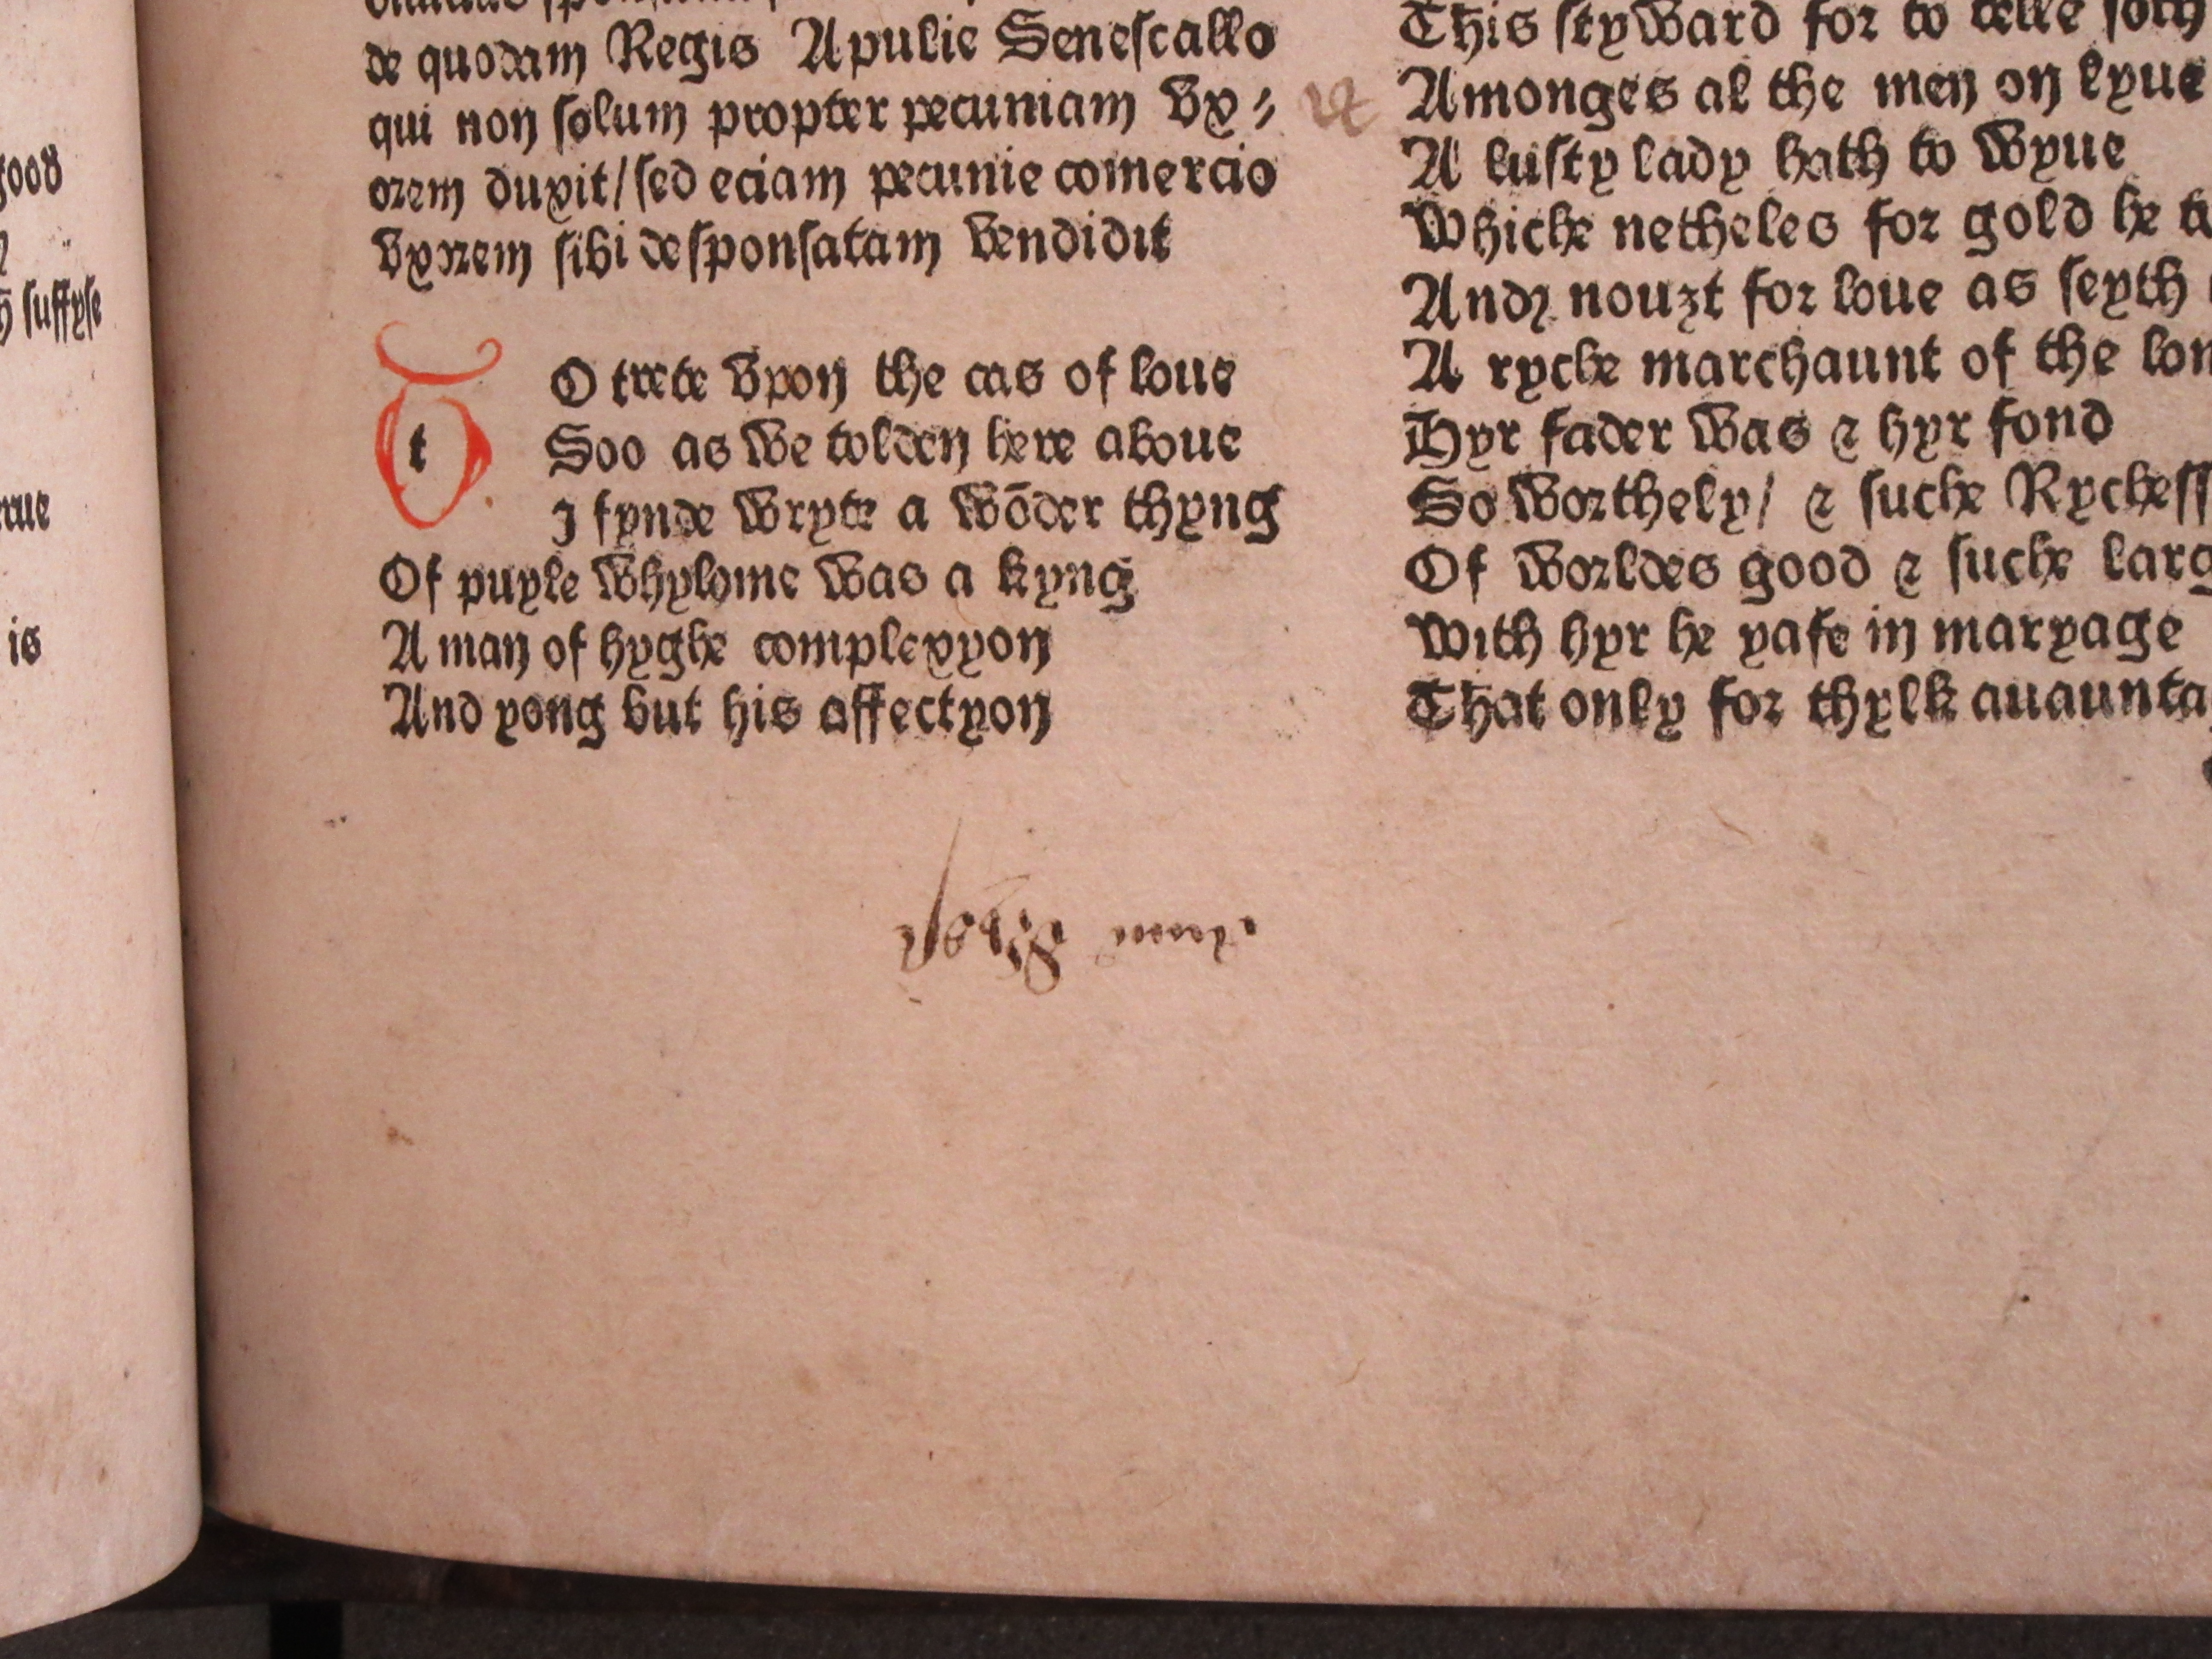 good
suffyse
is
de quodam Regis Apulie Senescallo
qui non solum propter pecuniam vx⸗
orem duxit/ sed eciam pecunie comercio
vxorem sibi desponsatam vendidit
t
O trete vpon the cas of loue
Soo as we tolden here aboue
I fynde wryte a wōder thyng
Of puyle whylome was a kyng
A man of hyghe complexyon
And yong but his affectyon
This styward for to telle soth
Amonges al the men on lyue
A lusty lady hath to wyue
Whiche netheles for gold he
And nouȝt for loue as seyth
A ryche marchaunt of the
Hyr fader was & hyr fond
So worthely/ & suche
Of worldes good & suche
With hyr he yafe in maryage
That only for thylk